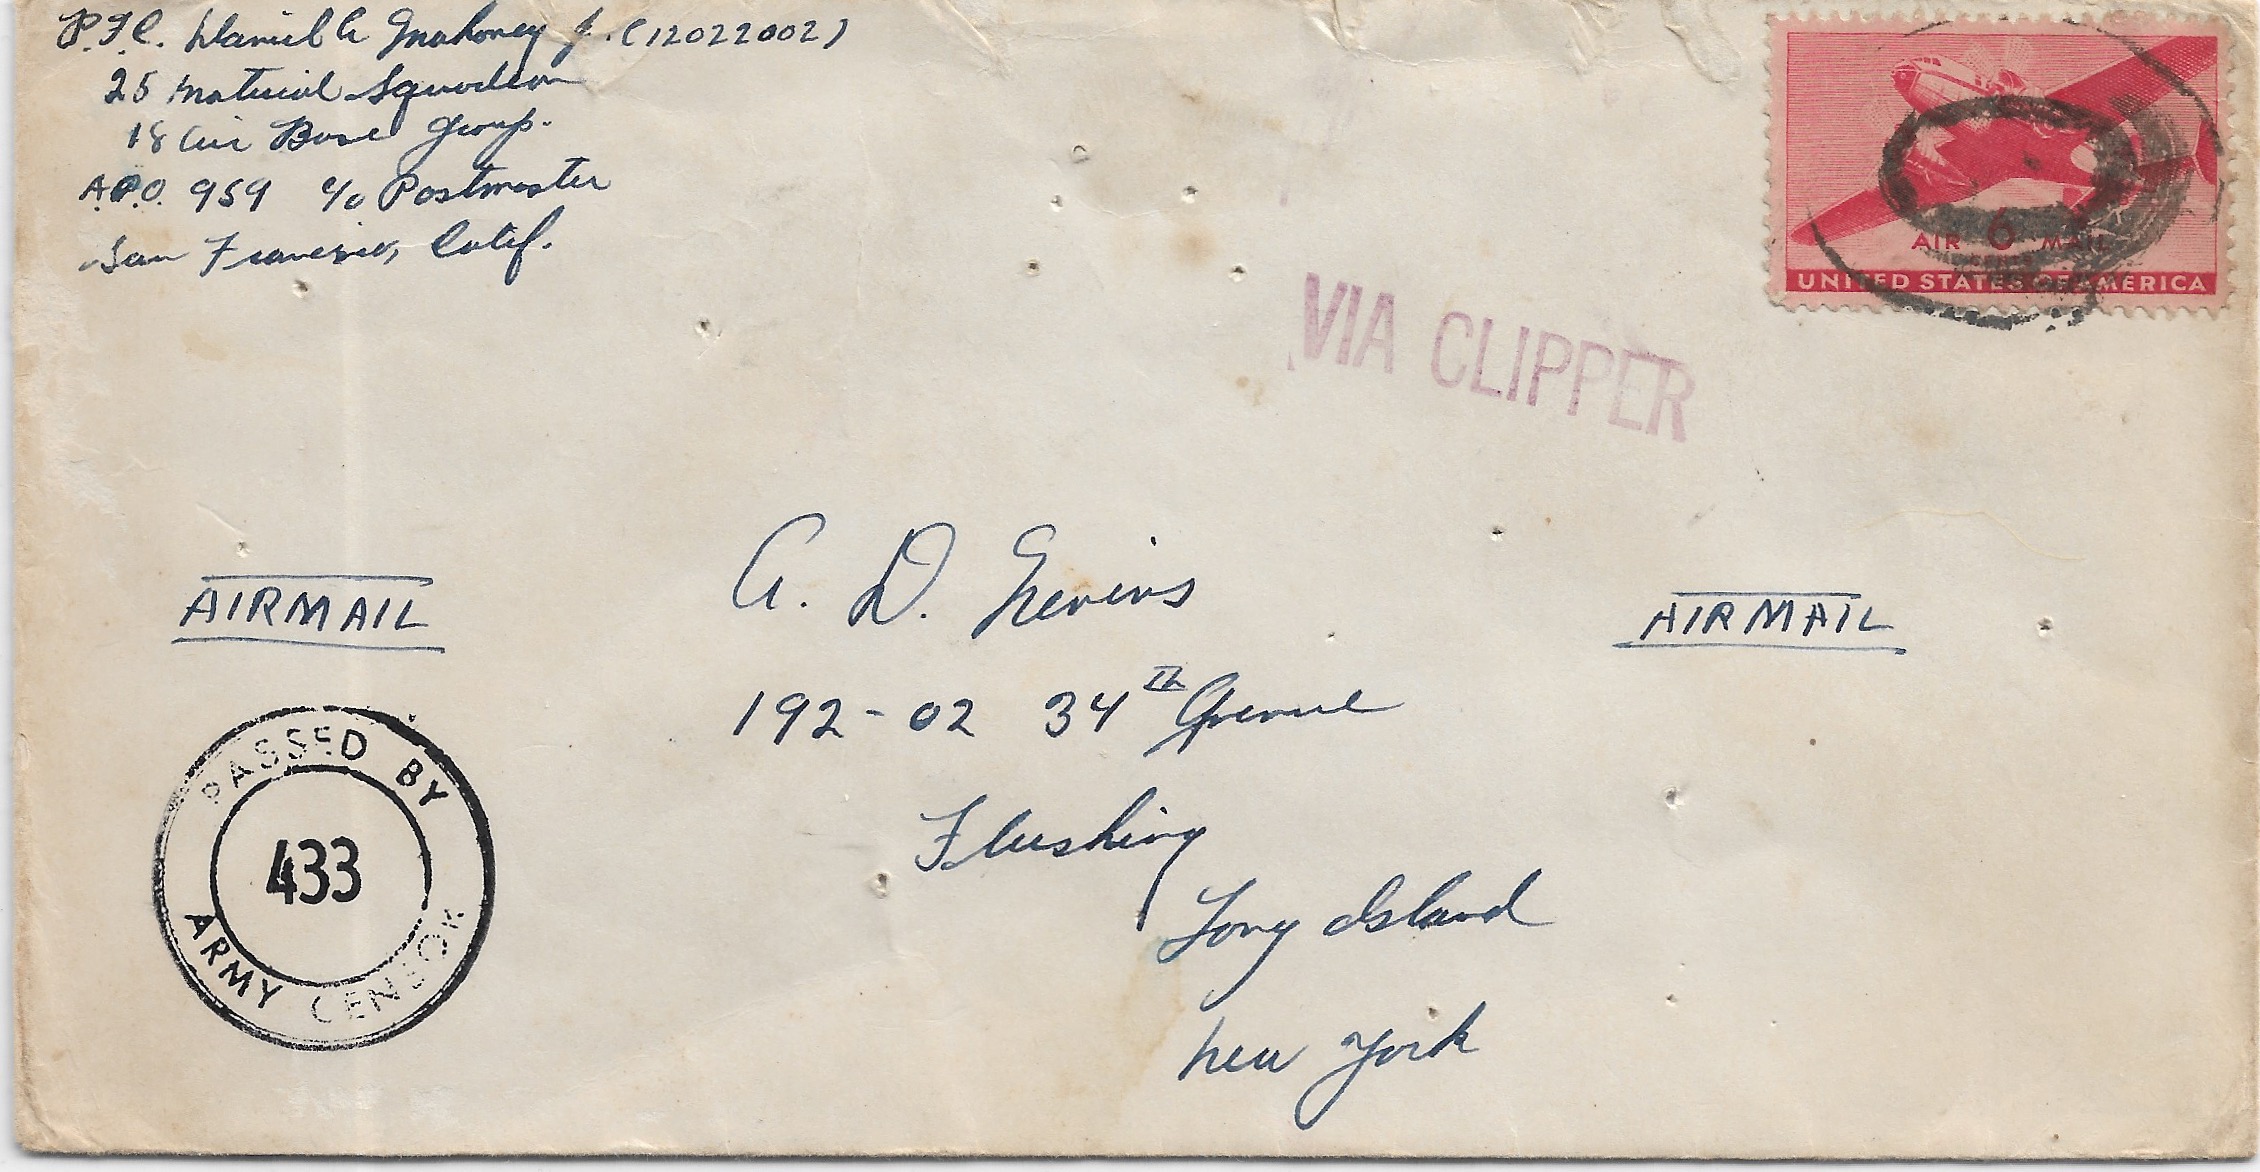 P.F.C. Daniel A Mahoney Jr. (12022002)
25 Material Squadron
18 Air Base Group.
A.P.O. 959 c/o Postmaster
San Francisco, Calif.
6
AIR MAIL
UNITED STATES OF AMERICA
VIA CLIPPER
AIRMAIL
AIRMAIL
A. D. Nevins
192-02 34th Avenue
Flushing
Long Island
New York
PASSED BY
433
ARMY CENSOR